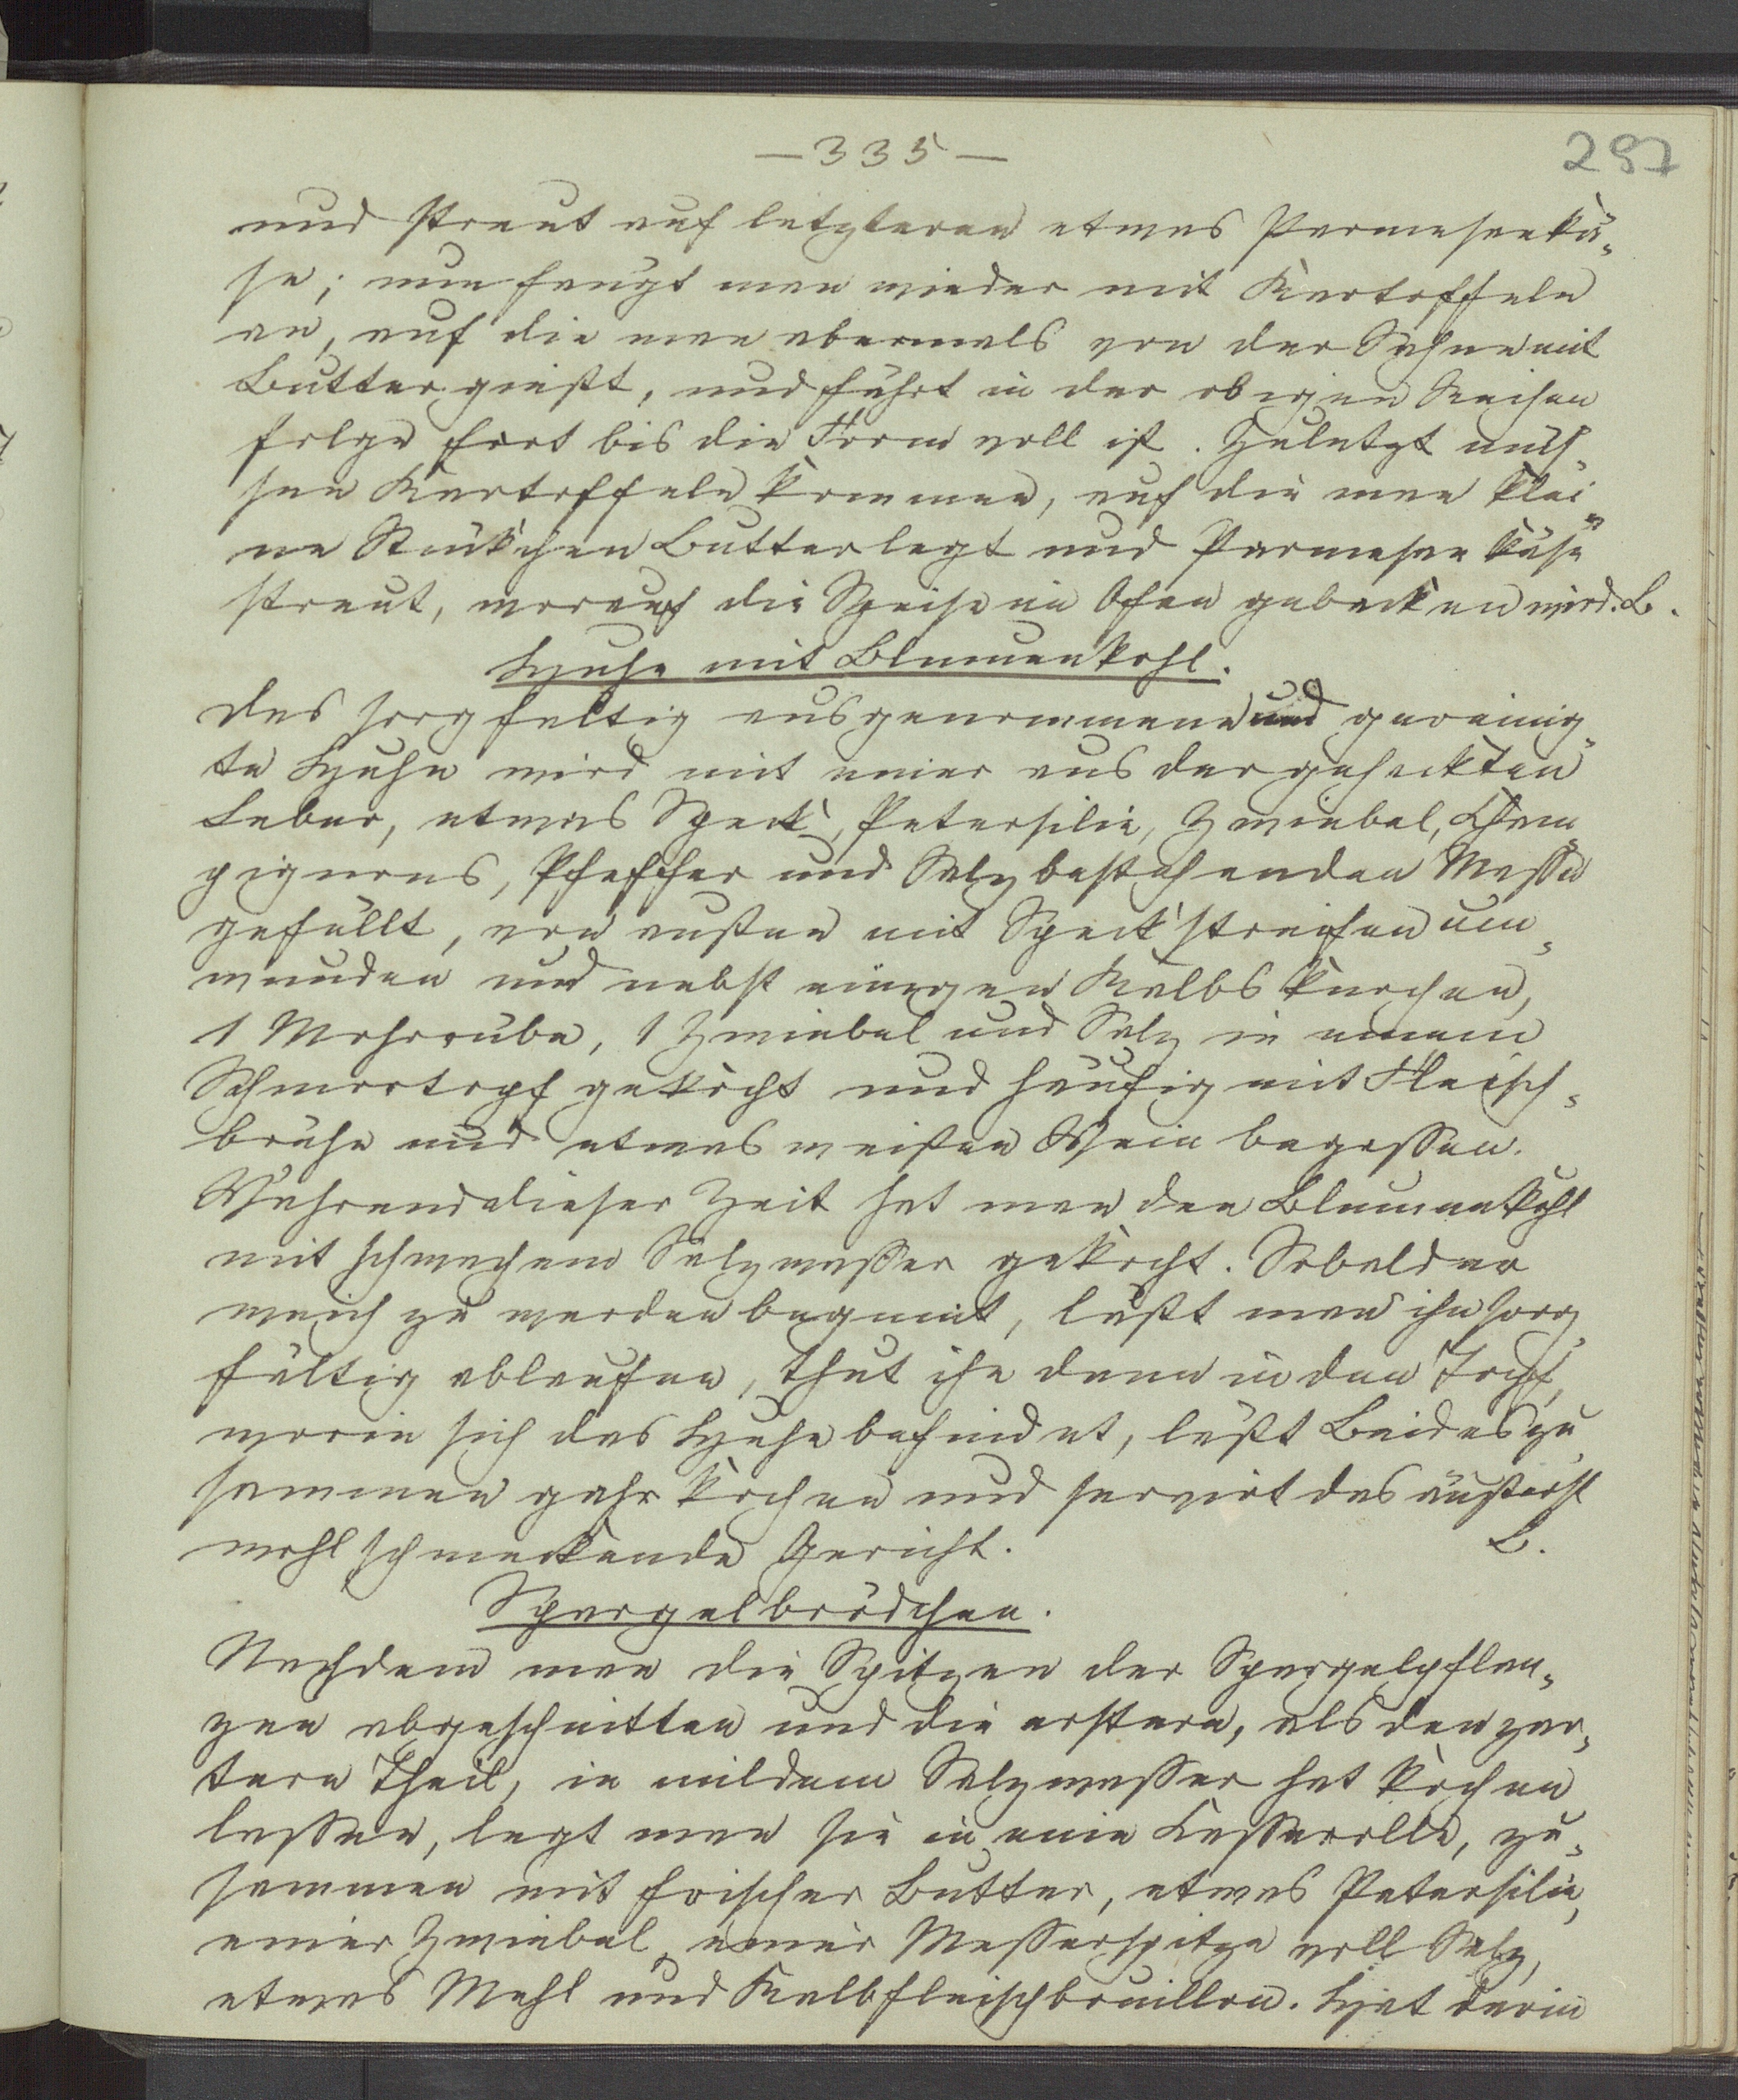 — 335 —
297
und streut auf letzteren etwas Parmesankä-
se; nun fängt man wieder mit Kartoffeln
an, auf die man abermals von der Sahne mit
Butter gießt, und fährt in der obigen Reihen
folge fort bis die Form voll ist. Zuletzt müs-
sen Kartoffeln kommen, auf die man klei-
ne Stückchen Butter legt und Parmesan käse
streut, worauf die Speise im Ofen gebacken wird. B.
Huhn mit Blumenkohl.
Das sorgfältig ausgenommene und gereinig-
te Huhn wird mit einer aus der gehackten
Leber, etwas Speck, Petersilie, Zwiebel, Cham-
pignons, Pfeffer und Salz bestehenden Masse
gefüllt, von außen mit Speckstreifen um-
wunden und nebst einigen Kalbsknochen,
1 Mohrrübe, 1 Zwiebel und Salz in einem
Schmortopf gekocht und häufig mit Fleisch-
brühe und etwas weißen Wein begossen.
Während dieser Zeit hat man den Blumenkohl
mit schwachem Salzwasser gekocht. Sobald er
weich zu werden beginnt, läßt man ihn sorg-
fältig ablaufen, thut ihn dann in den Topf,
worin sich das Huhn befindet, läßt Beides zu-
sammen gahr kochen und servirt das äußerst
wohlschmeckende Gericht. B.
Spargelbrödchen.
Nachdem man die Spitzen der Spargelpflan-
zen abgeschnitten und die erstern, als den zar-
tern Theil, in mildem Salzwasser hat kochen
lassen, legt man sie in eine Kasserolle, zu-
sammen mit frischer Butter, etwas Petersilie,
einer Zwiebel, einer Messerspitze voll Salz,
etwas Mehl und Kalbfleischbouillon. Hat darin